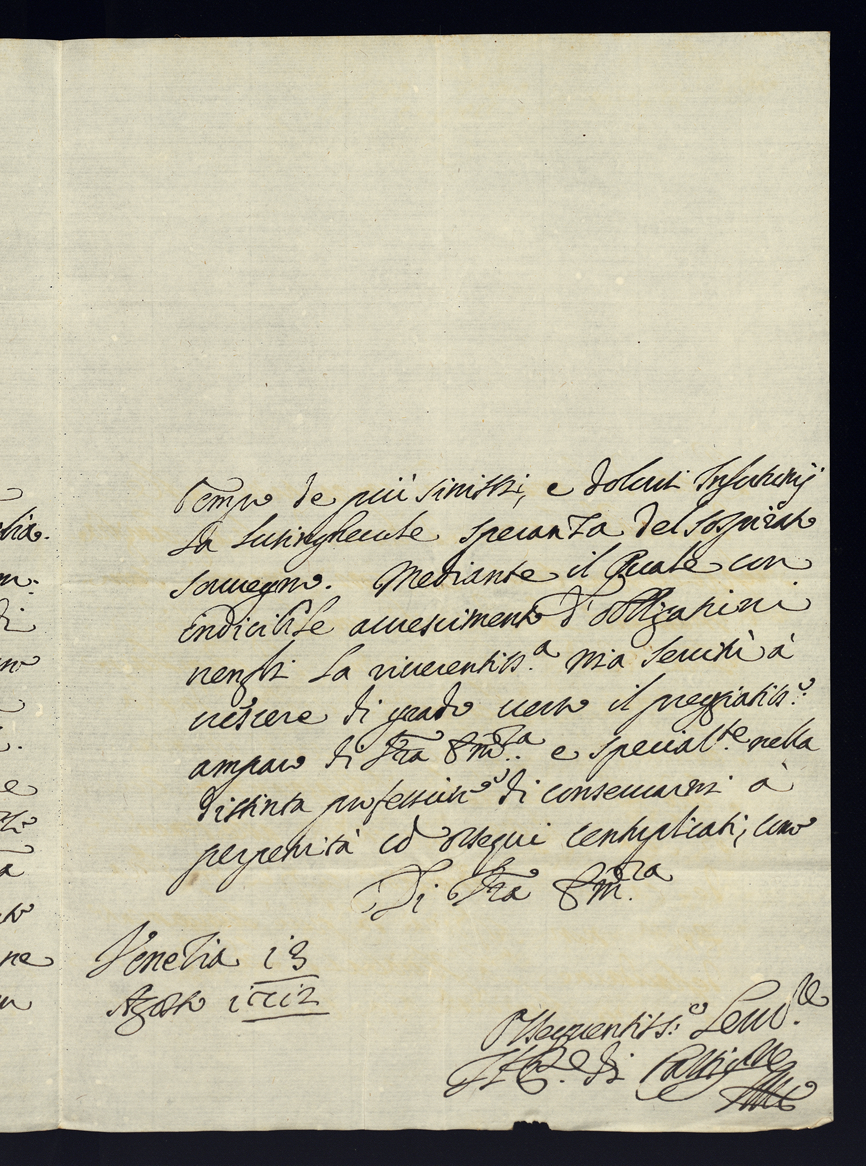 Tempo de più sinistri, e dolenti Infortunij
La lusingheuole speranza del sospirato
souuegno. Mediante il Quale con
indicibile accrescimento d'obligationi
uenghi La riuerentiss.a mia seruitù à
crescere di grado uerso il preggiatiss.o
amparo di Vra Em.za e special.te nella
distinta professione di conseruarmi à
perpetuità cō ossequi centuplicati, come
Di Vra Em.za
Venetia 13
Agosto 1712
Ossequentiss.o Seru.re
di
olia.
m.
di
ne